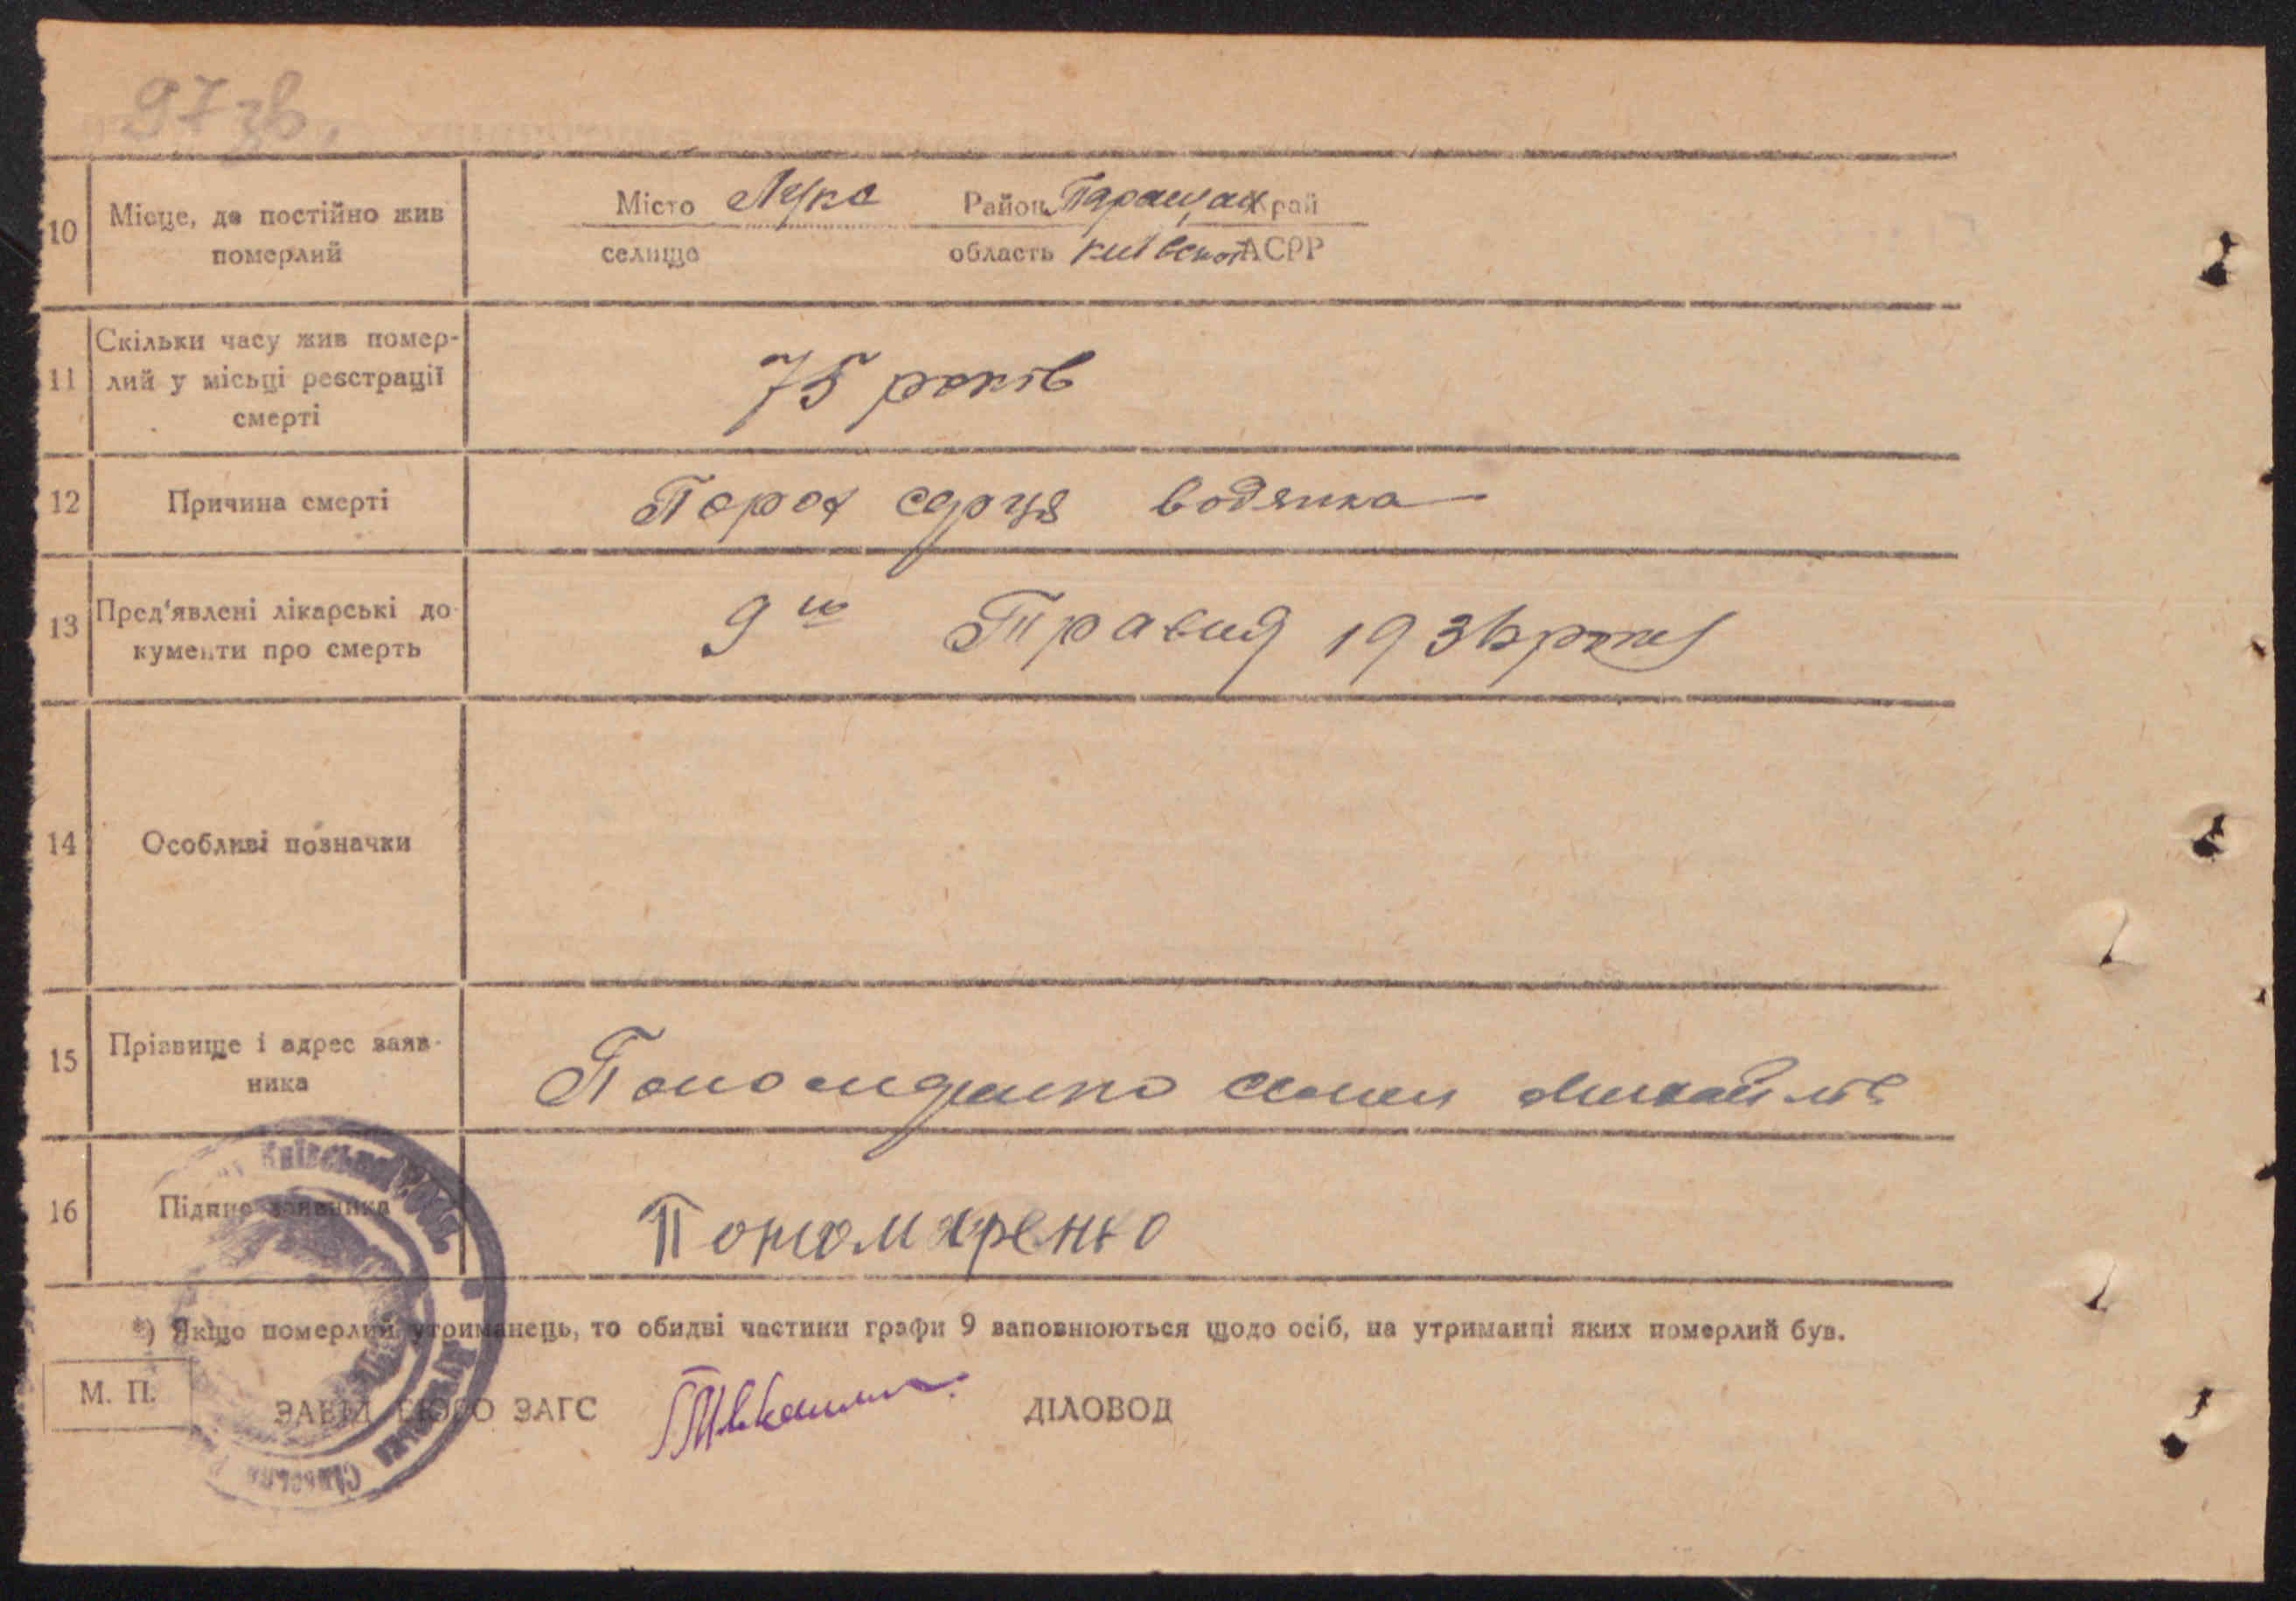 97 зв.
10 Місце, де постійно жив померлий
Місто Лука Район Таращан край
селище область Київської АСРР
11 Скільки часу жив помер-
лий у місьці реєстрації
смерті
75 років
12 Причина смерті
Порок серця водянка
13 Пред'явлені лікарські до-
кументи про смерть
9го Травня 193 року
14 Особливі позначки
15 Прізвище і адрес заяв-
ника
Михайлів
16 Підпис заявника
Пономаренко
*) Якщо померлий утриманець, то обидві частини графи 9 заповнюються щодо осіб, на утриманні яких померлий був.
М. П.
ЗАВІД БЮРО ЗАГС
ДІЛОВОД
Київська
Сільська